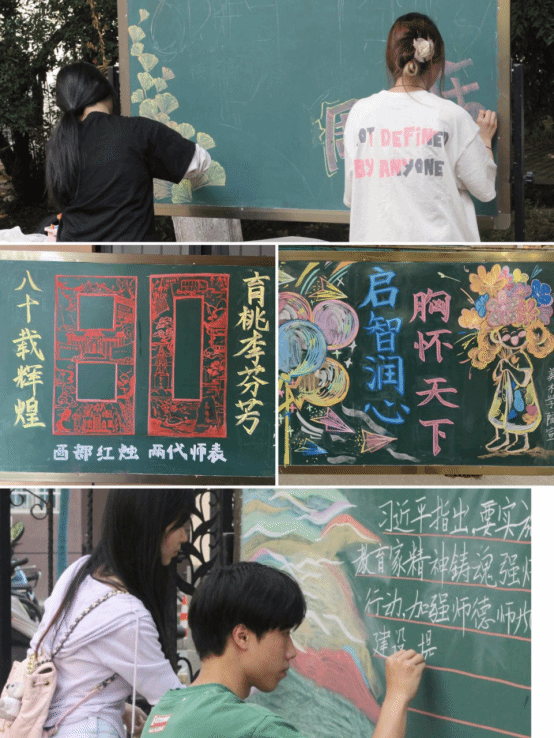 OT DEFiNED
BY ANYONE
八十载辉煌
80
育桃李芬芳
西部红烛 两代师表
启智润心
胸怀天下
习近平指出,要实
教育家精神铸魂强
行动,加强师德师
建设